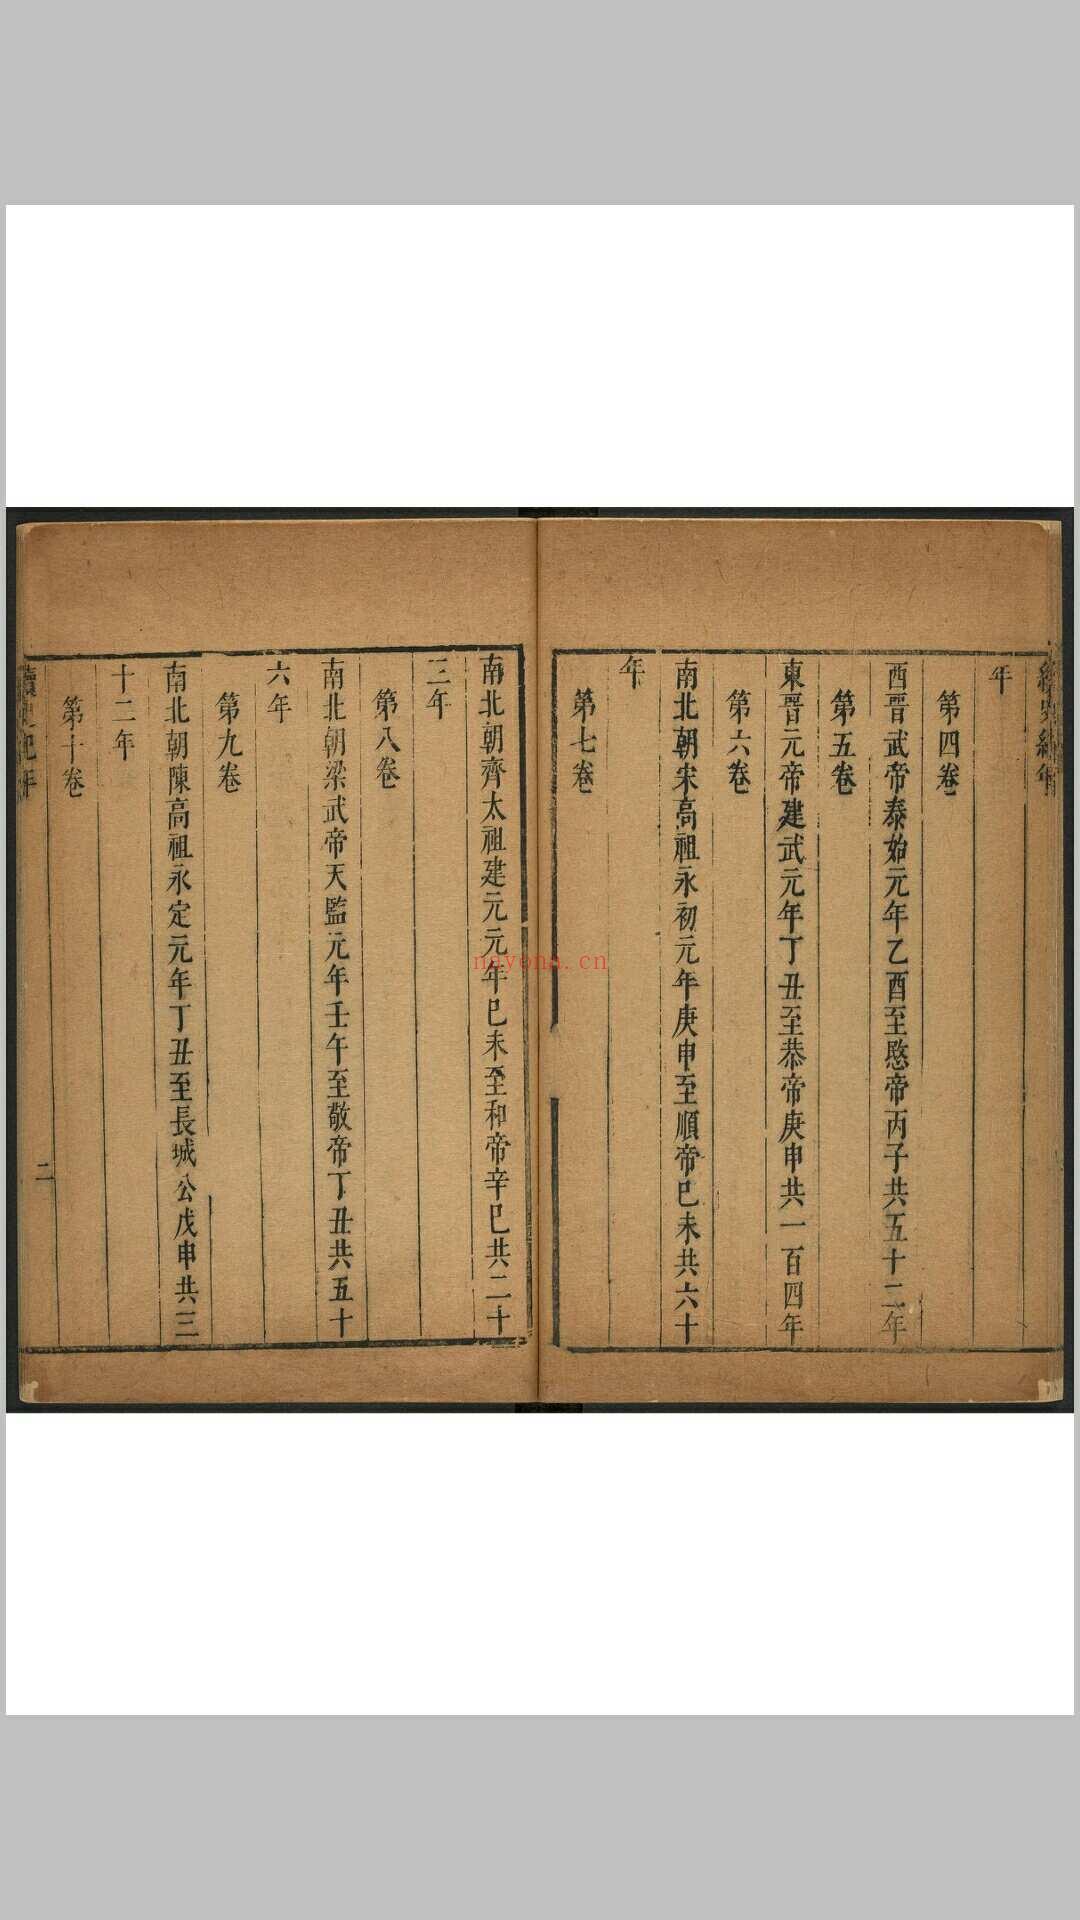 年
第四卷
西晉武帝泰始元年乙酉至愍帝丙子共五十二年
第五卷
東晉元帝建武元年丁丑至恭帝庚申共一百四年
第六卷
南北朝宋高祖永初元年庚申至順帝己未共六十
年
第七卷
南北朝齊太祖建元元年己未至和帝辛巳共二十
三年
第八卷
南北朝梁武帝天監元年壬午至敬帝丁丑共五十
六年
第九卷
南北朝陳高祖永定元年丁丑至長城公戊申共三
十二年
第十卷
續史紀年
二
nayona.cn